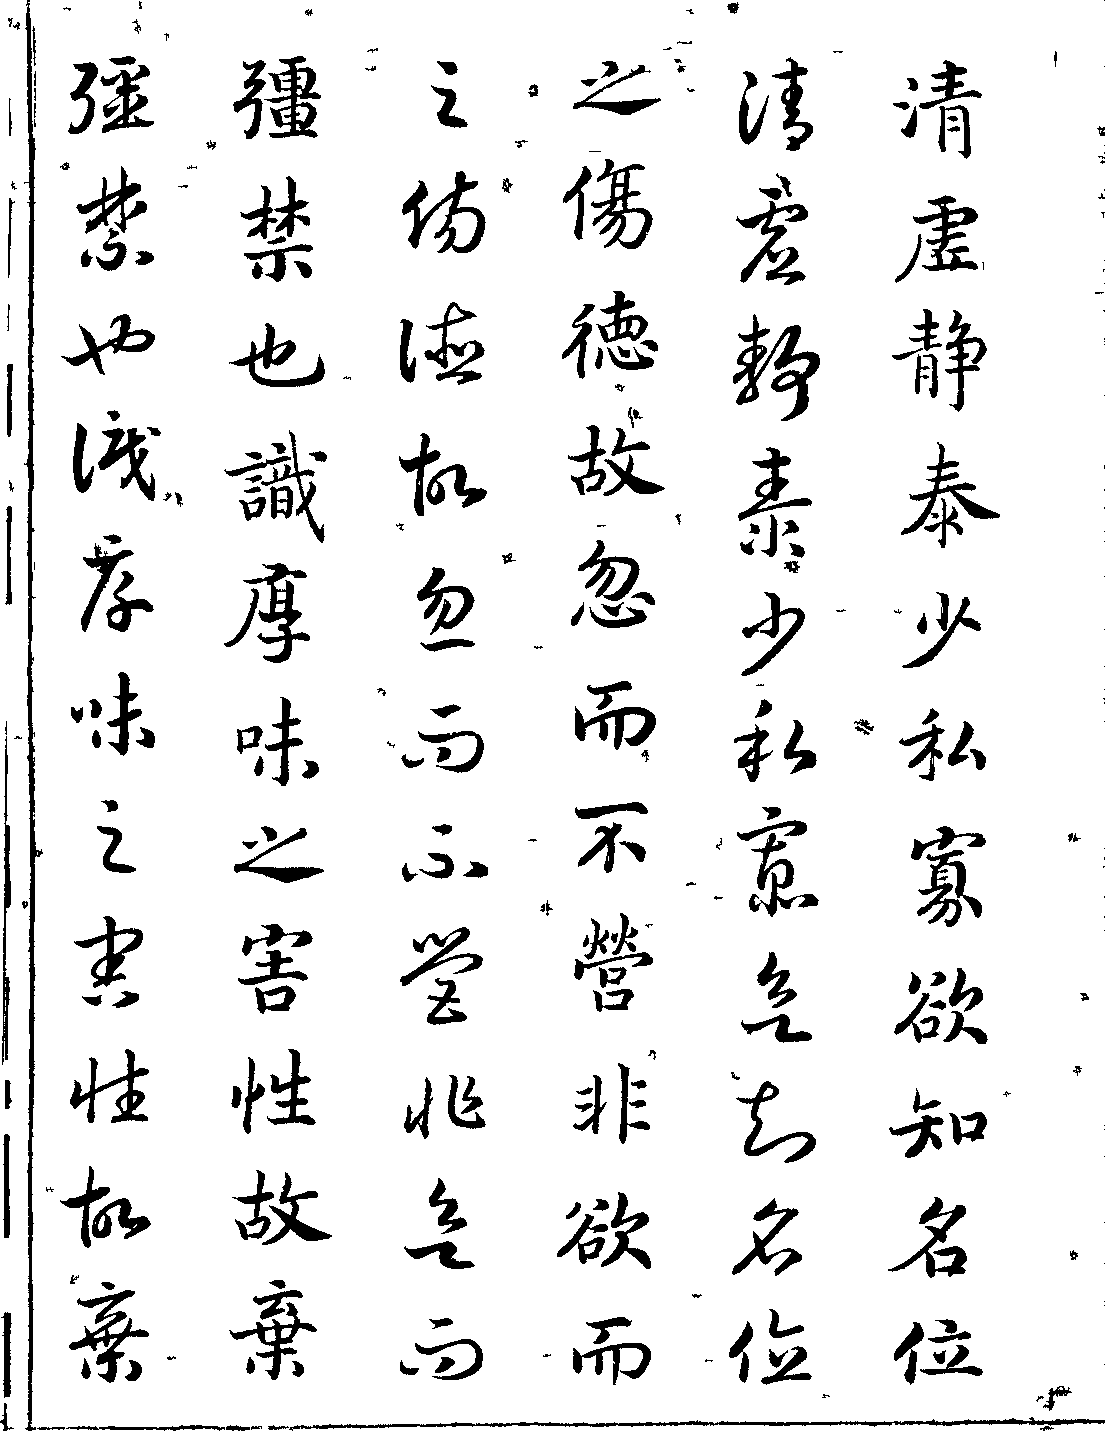 清虛静泰少私寡欲知名位
清虛靜泰少私寡欲知名位
之傷德故忽而不營非欲而
之傷德故忽而不營非欲而
彊禁也識厚味之害性故棄
彊禁也識厚味之害性故棄